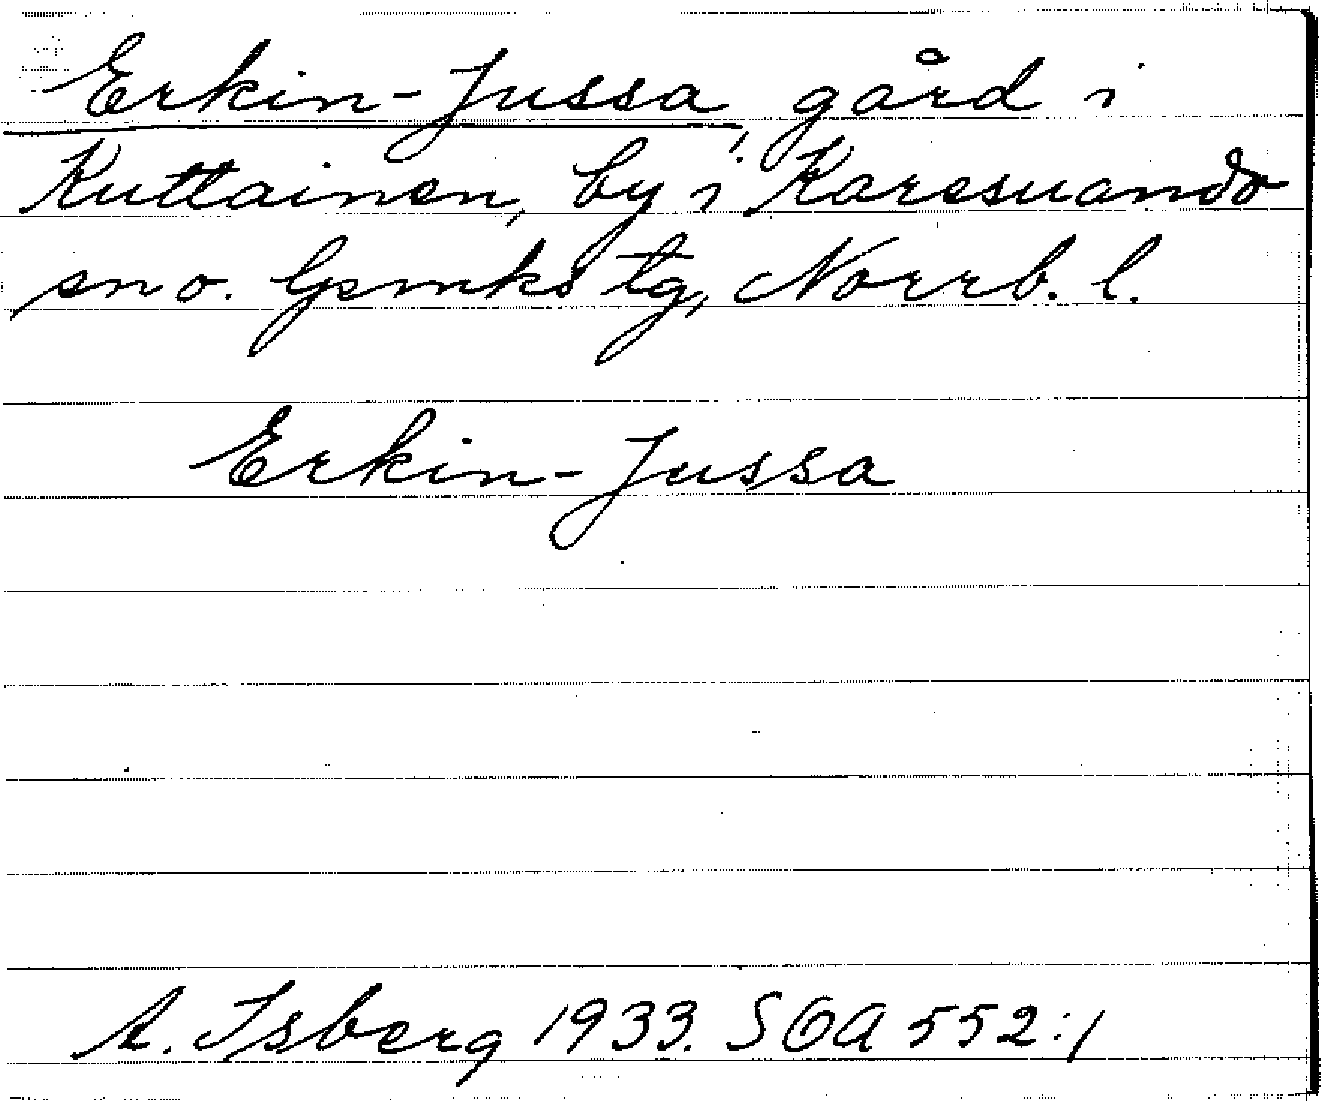 Erkin-Jussa, gård i
Kuttainen, by i Karesuando
sn o. lpmks tg, Norrb. l.
Erkin-Jussa
A. Isberg 1933. SOA 552:1